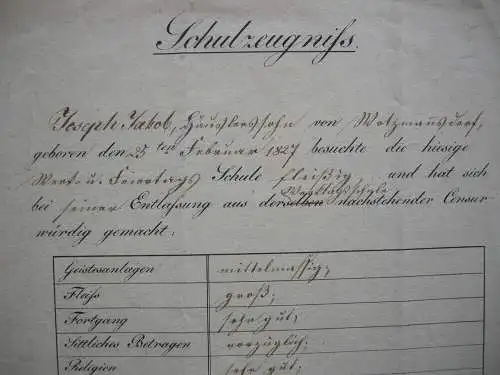 Schulzeugniſs.
Joseph Jakob, Häuslerssohn von Wotzmannsdorf,
geboren den 25ten Februar 1827 besuchte die hiesige
Werk- u. Feiertags Schule fleißig und hat sich
Werktagsschule
bei seiner Entlaſsung aus derselben nachstehender Censur
würdig gemacht:
Geistesanlagen mittelmässig;
Fleiſs groß;
Fortgang sehr gut;
Sittliches Betragen vorzüglich;
Religion sehr gut;